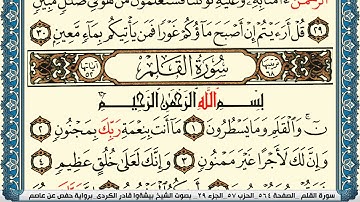 الرحمن ءامنا به وعليه توكلنا فستعلمون من هو في ضلل مبين
٢٩ قل أرءيتم إن أصبح ماؤكم غورا فمن يأتيكم بماء معين ٣٠
سورة القلم
بسم الله الرحمن الرحيم
ن والقلم وما يسطرون ١ ما أنت بنعمة ربك بمجنون ٢
وإن لك لأجرا غير ممنون ٣ وإنك لعلى خلق عظيم ٤
سورة القلم _الصفحة ٥٦٤_ الحزب ٥٧_ الجزء ٢٩_ بصوت الشيخ بيشةوا قادر الكردي_ برواية حفص عن عاصم